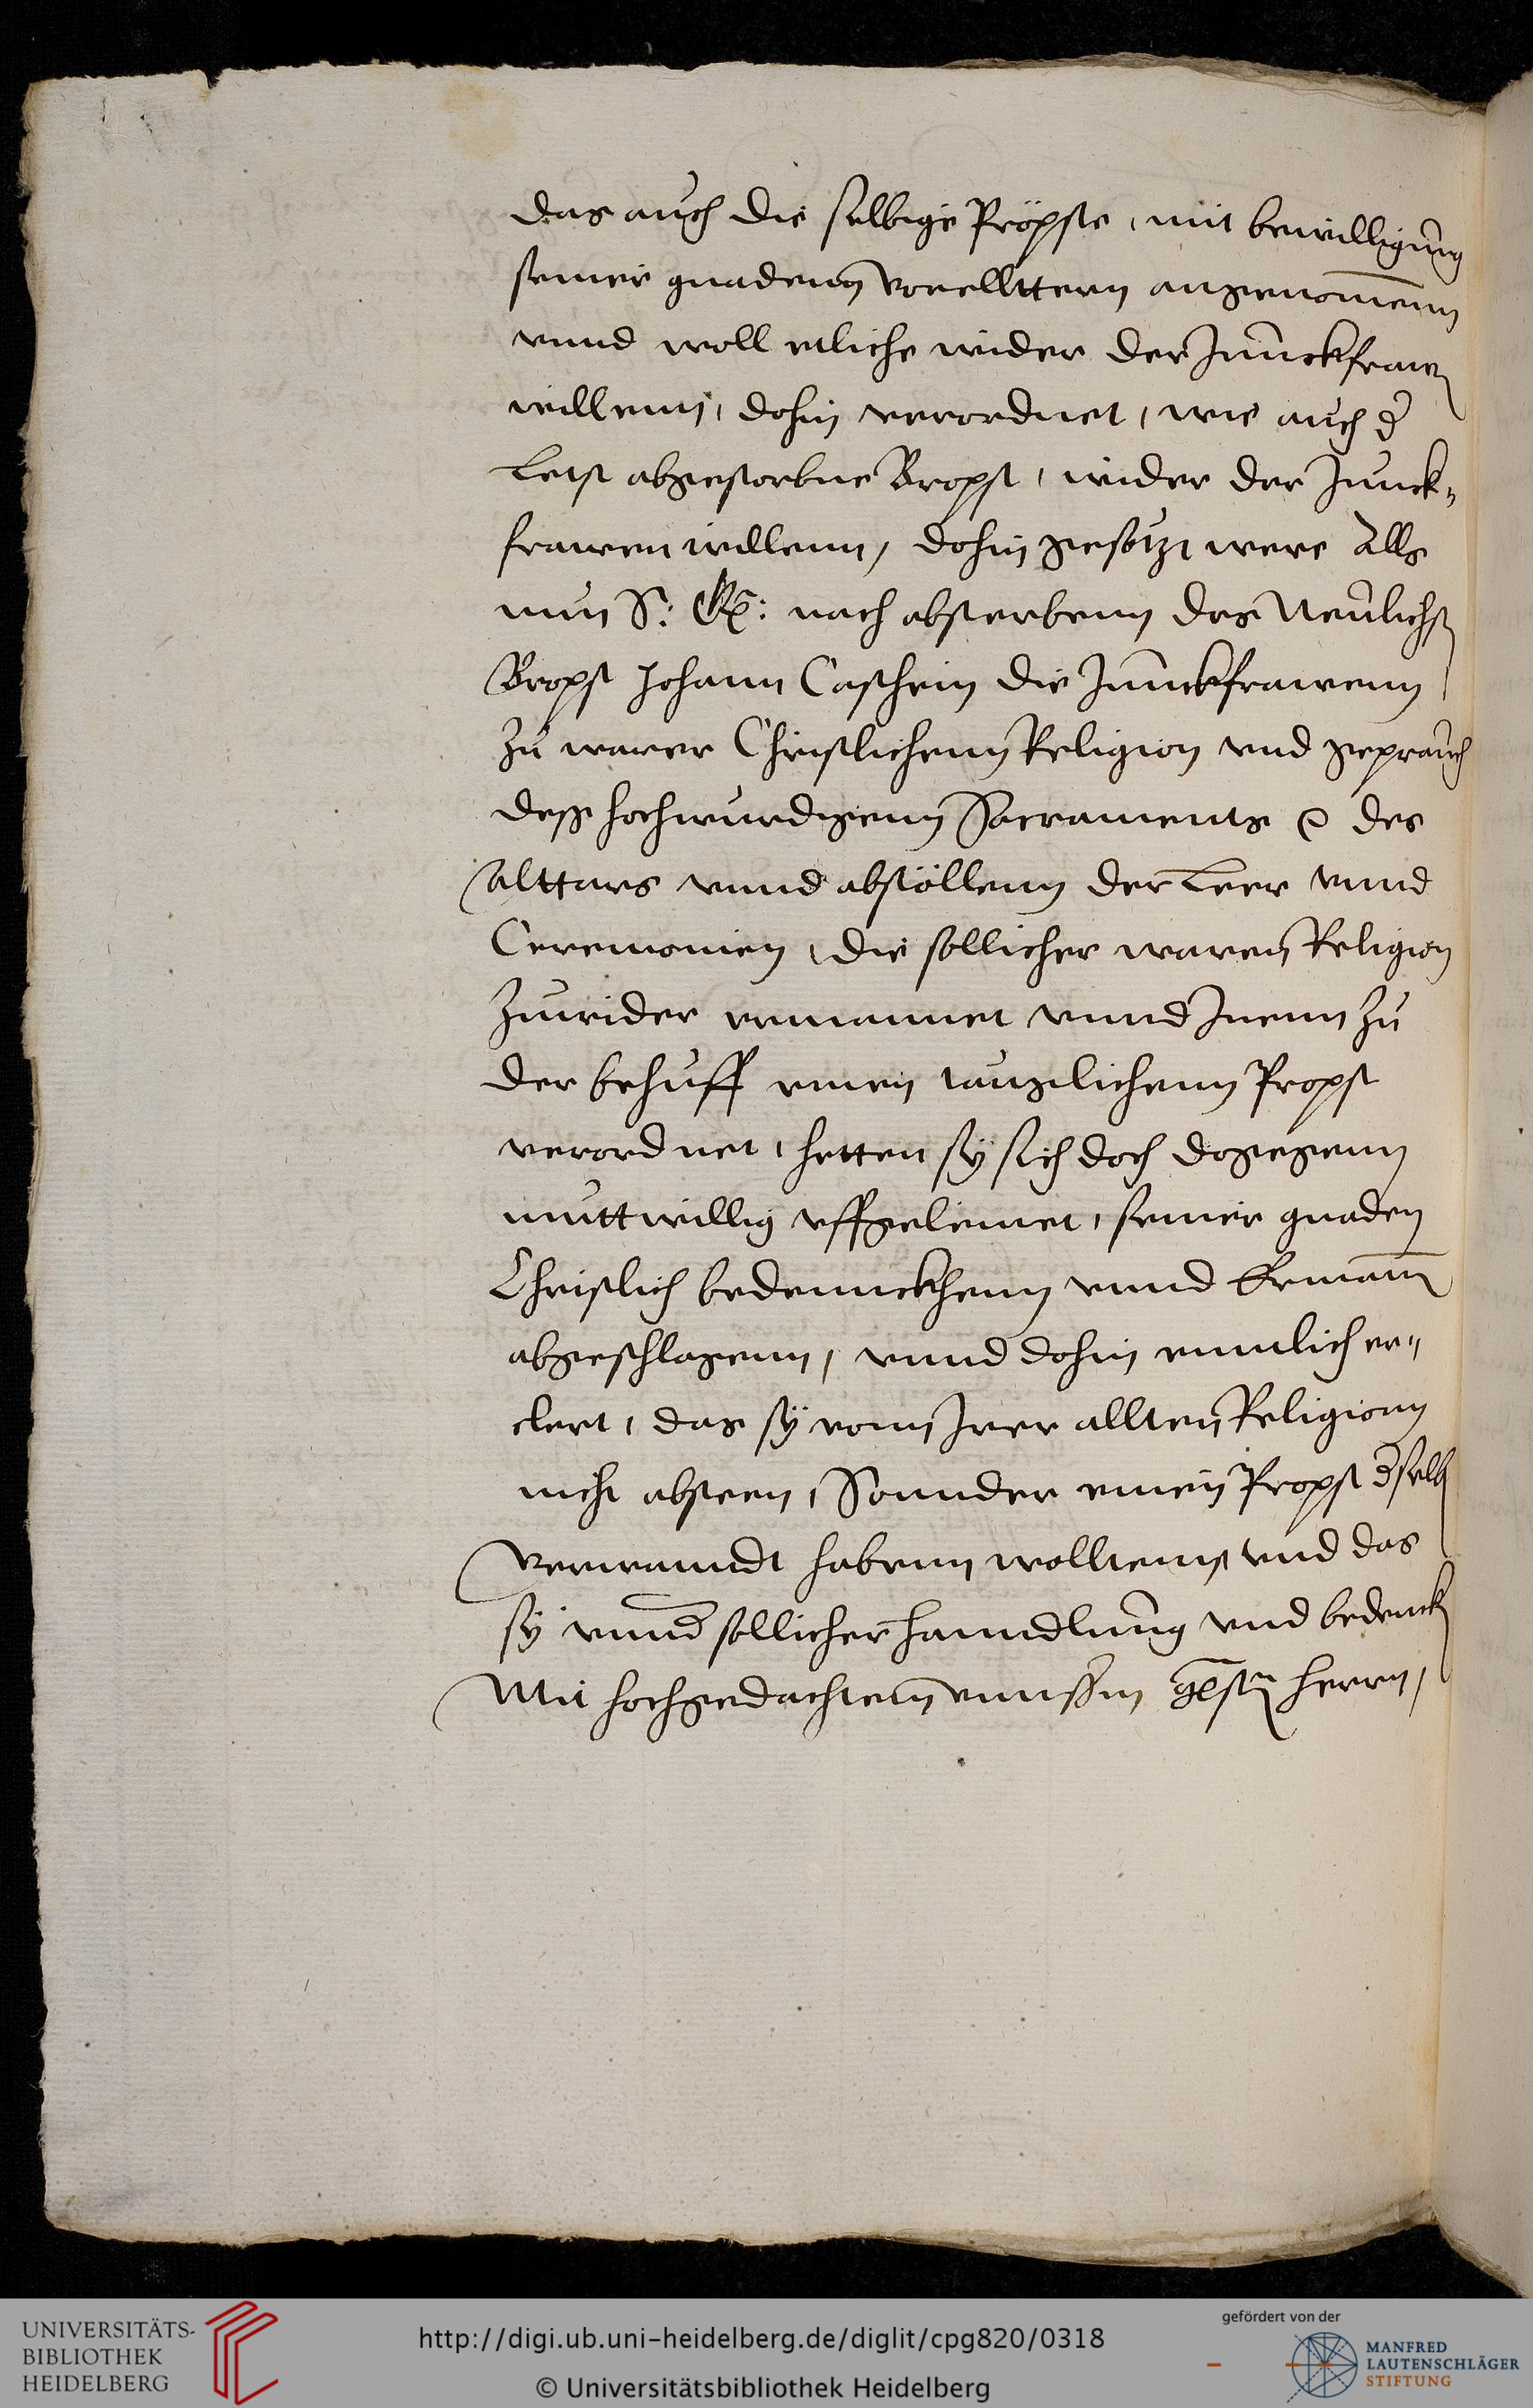 das auch die selbige Pröpste, mit bewilligung
seiner gnadenn vorellttern angenom̄enn
vnnd woll etliche wider der Junckfrawen
willenn, dohin verordnet, wie auch d̕
letst abgestorbne Bropst, wider der Junck„
frawen willenn, dohin gesötzt were Alls
nun S: G: nach absterbenn des Neulichst
Bropst Johann Casthein die Junckfrawenn
zu warer Christlichenn Religion vnd geprauch
dess hochwurdigenn Sacraments des
Alttars vnnd abstöllenn der Leer vnnd
Ceremonien, die sollicher waren Religion
zuwider ermannet vnnd Jnenn zu
der behuff einen tauglichenn Propst
verordnet, hetten sÿ sich doch dogegenn
muttwillig vffgeleinet, seiner gnaden
Christlich bedennckhenn vnnd Erman̄
abgeschlagenn, vnnd dohin enntlich er„
clert, das sÿ vonn Jrer allten Religionn
nicht absteen, Sonnder einen Propst d̕selb
Verwanndt habenn wolltenn, vnd das
sÿ vnnd̕ sollicher hanndlung vnd bedenck
Mit hochgedachtem vnnserm gēstn̄ herrn,
UNIVERSITÄTS-
BIBLIOTHEK
HEIDELBERG
http://digi.ub.uni-heidelberg.de/diglit/cpg820/0318
© Universitätsbibliothek Heidelberg
gefördert von der
MANFRED
LAUTENSCHLÄGER
STIFTUNG